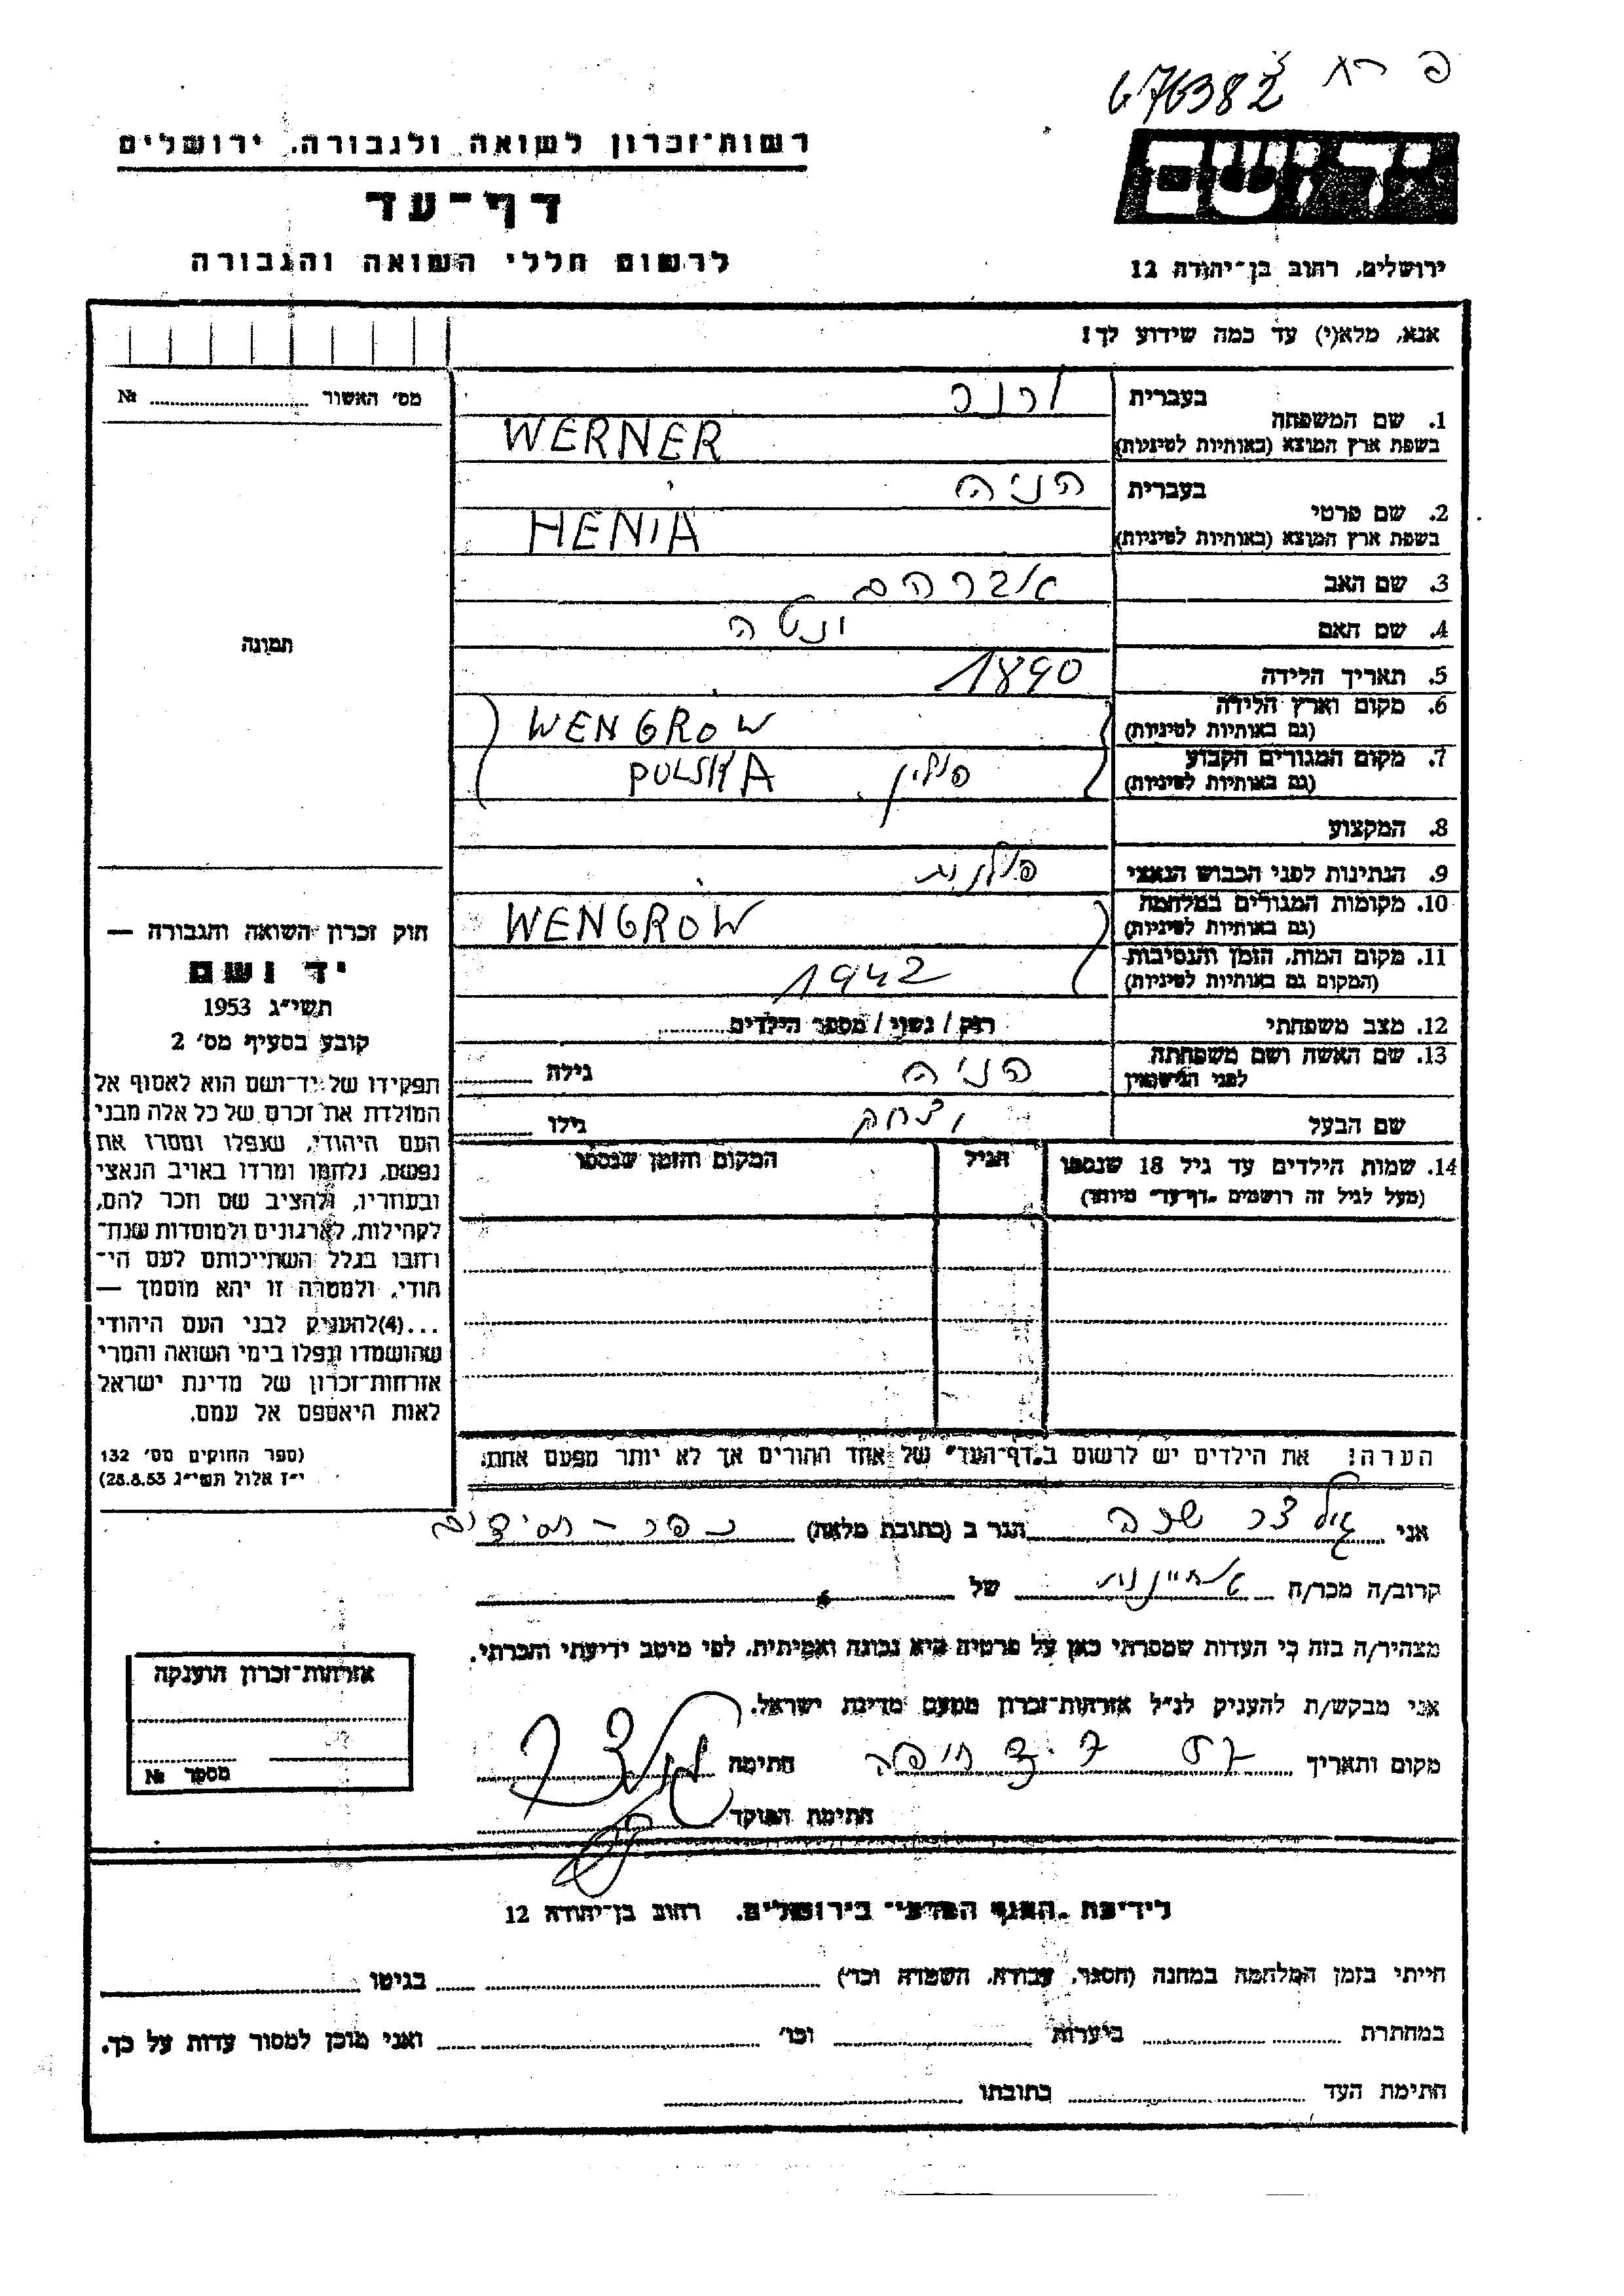 676382
רשות־זכרון לשואה ולגבורה, ירושלים
דף־עד
לרשום חללי השואה והגבורה
יד ושם
ירושלים, רחוב בן־יהודה 12
אנא, מלא(י) עד כמה שידוע לך!
מס׳ האשור № 
1. שם המשפחה
בעברית ורנר
בשפת ארץ המוצא (באותיות לטיניות) WERNER
2. שם פרטי
בעברית הניה
בשפת ארץ המוצא (באותיות לטיניות) HENIA
3. שם האב אברהם
4. שם האם
5. תאריך הלידה 1890
6. מקום וארץ הלידה WENGROW
(גם באותיות לטיניות)
7. מקום המגורים הקבוע פולין POLSKA
(גם באותיות לטיניות)
8. המקצוע
9. הנתינות לפני הכבוש הנאצי פולנית
10. מקומות המגורים במלחמה WENGROW
(גם באותיות לטיניות)
11. מקום המות, הזמן והנסיבות 1942
(המקום גם באותיות לטיניות)
12. מצב משפחתי רוק / נשוי / מספר הילדים
13. שם האשה ושם משפחתה הניה גילה
לפני הנישואין
שם הבעל יצחק גילו
14. שמות הילדים עד גיל 18 שנספו הגיל המקום והזמן שנספו
(מעל לגיל זה רושמים „דף־עד״ מיוחד)
הערה: את הילדים יש לרשום ב„דף־העד״ של אחד ההורים אך לא יותר מפעם אחת.
תמונה
חוק זכרון השואה והגבורה —
יד ושם
תשי״ג 1953
קובע בסעיף מס׳ 2
תפקידו של יד־ושם הוא לאסוף אל
המולדת את זכרם של כל אלה מבני
העם היהודי, שנפלו ומסרו את
נפשם, נלחמו ומרדו באויב הנאצי
ובעוזריו, ולהציב שם וזכר להם,
לקהילות, לארגונים ולמוסדות שנח־
רחבו בגלל השתייכותם לעם הי־
הודי, ולמטרה זו יהא מוסמך —
...(4)להעניק לבני העם היהודי
שהושמדו ונפלו בימי השואה והמרי
אזרחות־זכרון של מדינת ישראל
לאות היאספם אל עמם.
(ספר החוקים מס׳ 132
י״ז אלול תשי״ג 28.8.53)
אני הגר ב (כתובת מלאה) כפר - חסידים
קרוב/ה מכר/ה של
מצהיר/ה בזה כי העדות שמסרתי כאן על פרטיה היא נכונה ואמיתית, לפי מיטב ידיעתי והכרתי.
אני מבקש/ת להעניק לנ״ל אזרחות־זכרון מטעם מדינת ישראל.
מקום ותאריך חתימה
חתימת הפוקד
אזרחות־זכרון הוענקה
מספר №
לידיעת „האגף המדעי״ בירושלים, רחוב בן־יהודה 12
הייתי בזמן המלחמה במחנה (הסגר, עבודה, השמדה וכו׳) בגיטו
במחתרת ביערות וכו׳ ואני מוכן למסור עדות על כך.
חתימת העד כתובתו